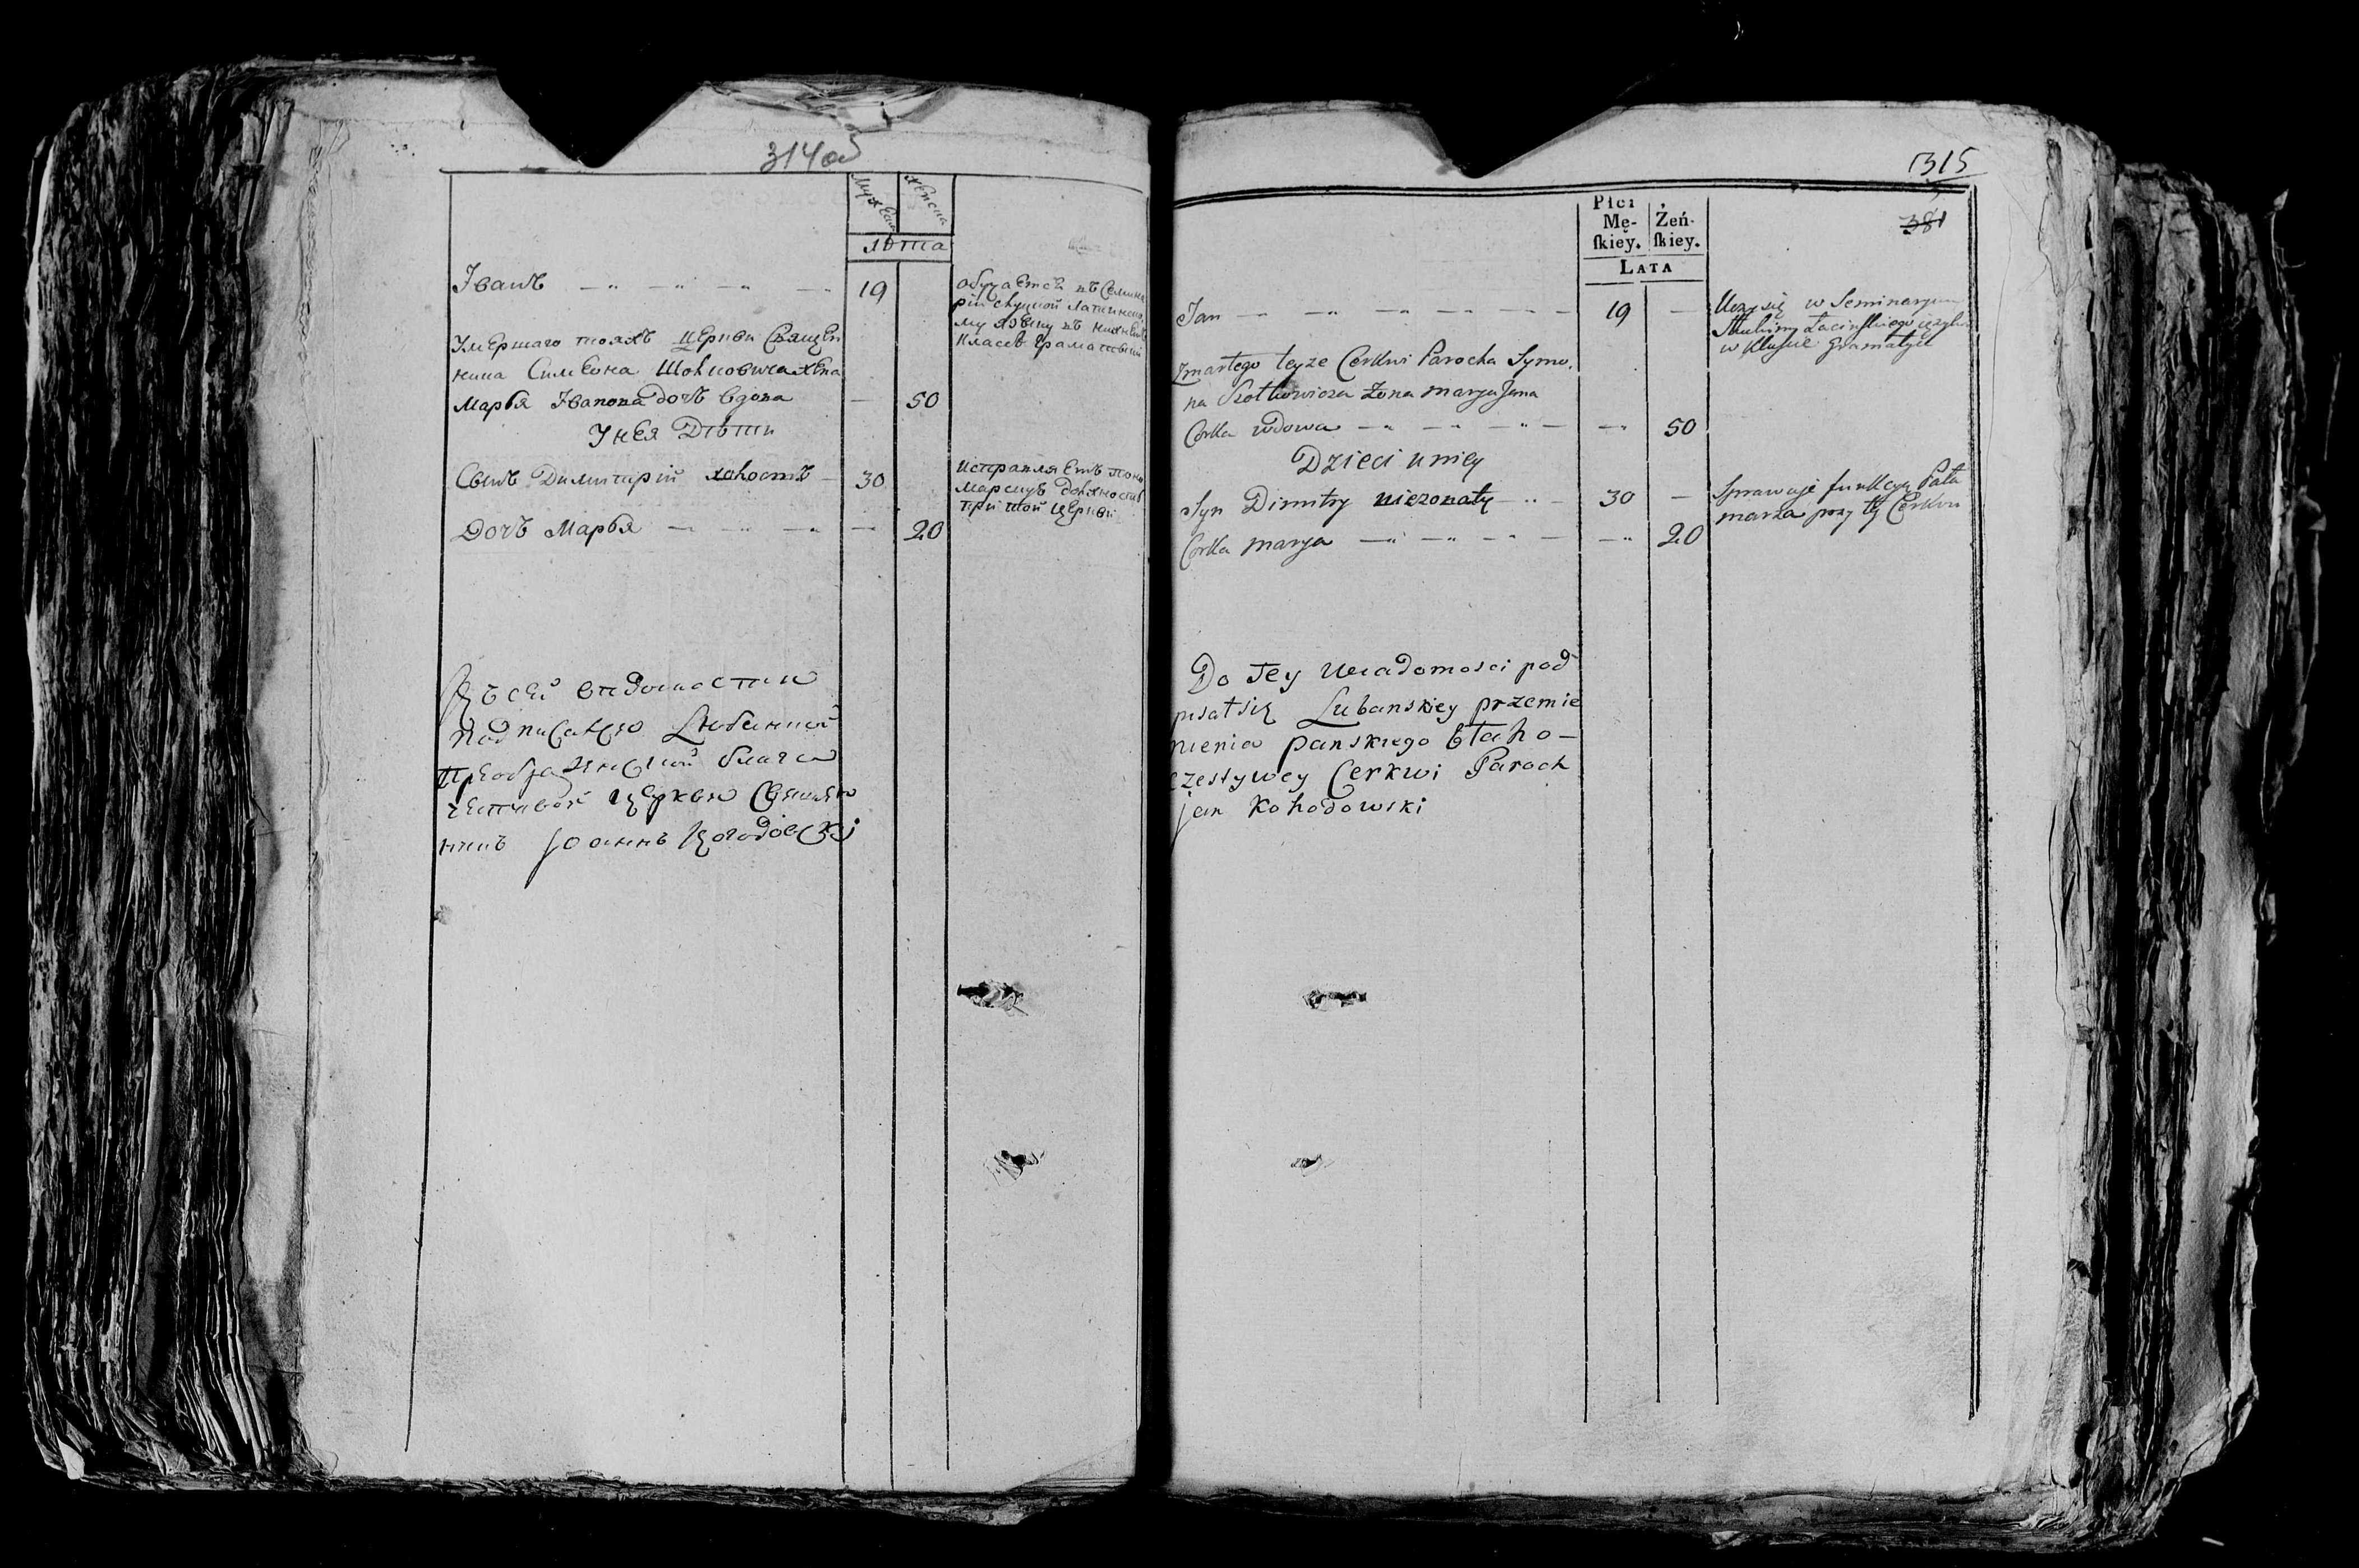 314об
Мужеска
Женска
лѣта
Іванъ — „ — „ — „ — „
19
обучается въ Семина
ріи слуцкой латинско
му языку въ нижнемъ
класѣ Граматики
Умершаго тояжъ церкви Священ
ника Симеона Шолковича жена
Марья Иванова дочъ вдова
—
50
У нея Дѣти
Сынъ Димитрій холостъ —
30
исправляетъ поно
марскую должность
при той церкви
Дочъ Марья — „ — „
—
20
Къ сей вѣдомости
подписался Любанской
Преображенской благо
честивой церкви Священ
никъ Іоаннъ Когодовскі
315
381
Płci
Mę-
ſkiey.
Żeń-
ſkiey.
LATA
Jan — „ — „ — „ —
19
—
Uczy się w Seminaryum
Słuckim Łacińskiego języka
w Klasie Gramatyki
Zmarłego teyze Cerkwi Parocha Symo,
na Szołkowicza Żona marya Jana
Corka wdowa — „ — „ — „ —
— „
50
Dzieci u niey
Syn Dimitry niezonaty — „ —
30
—
Sprawuje funkcyą Pała
marza przy tey Cerkwi
Corka marya — „ — „ — „ —
— „
20
Do Tey Wiadomosci pod
pisałsię Lubanskiey przemie
nienia panskiego błaho —
czestywey Cerkwi Paroch
jan Kohodowski